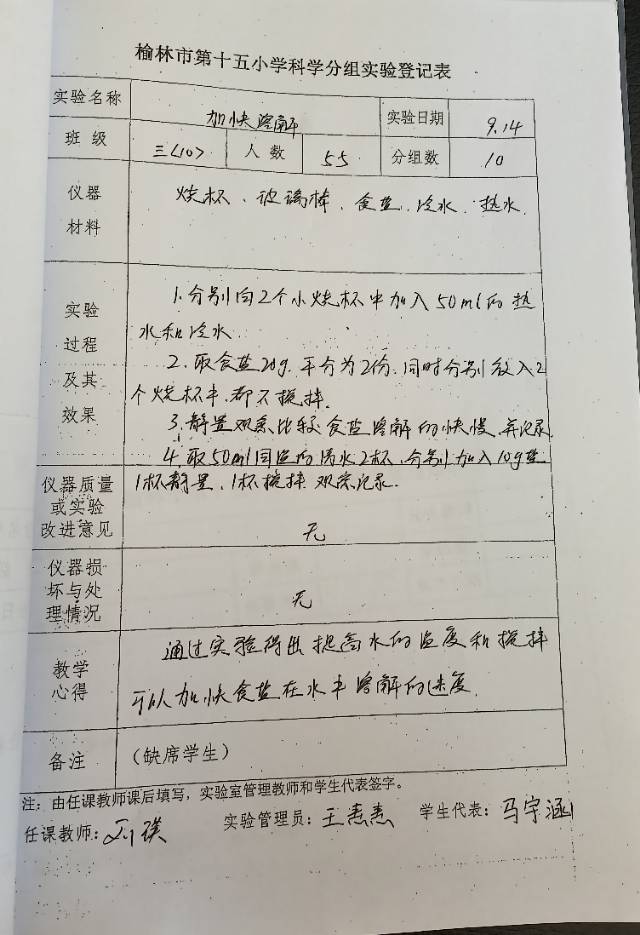 榆林市第十五小学科学分组实验登记表
实验名称 加快溶解 实验日期 9.14
班级 三<10> 人数 55 分组数 10
仪器材料 烧杯、玻璃棒、食盐、冷水、热水.
实验过程及其效果
1.分别向2个小烧杯中加入50ml的热
水和冷水.
2.取食盐20g.平分为2份.同时分别放入2
个烧杯中.都不搅拌.
3.静置观察比较食盐溶解的快慢.并记录
4.取50ml同温的清水2杯.分别加入10g盐
1杯静置、1杯搅拌.观察记录.
仪器质量或实验改进意见 无
仪器损坏与处理情况 无
教学心得
通过实验得出提高水的温度和搅拌
可以加快食盐在水中溶解的速度.
备注 (缺席学生)
注:由任课教师课后填写,实验室管理教师和学生代表签字。
任课教师: 实验管理员: 学生代表:马宇涵